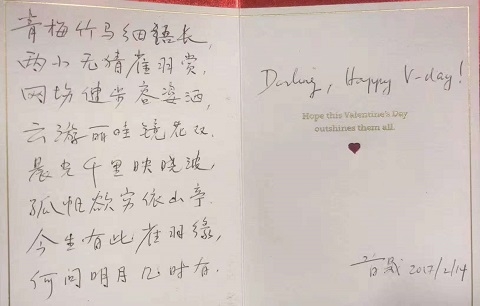 青梅竹马细语长,
两小无猜雀羽赏,
网场健步容姿洒,
云游丽哇镜花双.
晨光千里映晓波,
孤帆欲穷依山亭.
今生有此雀羽缘,
何问明月几时有.
Darling, Happy V-day!
Hope this Valentine's Day
outshines them all.
2017/2/14